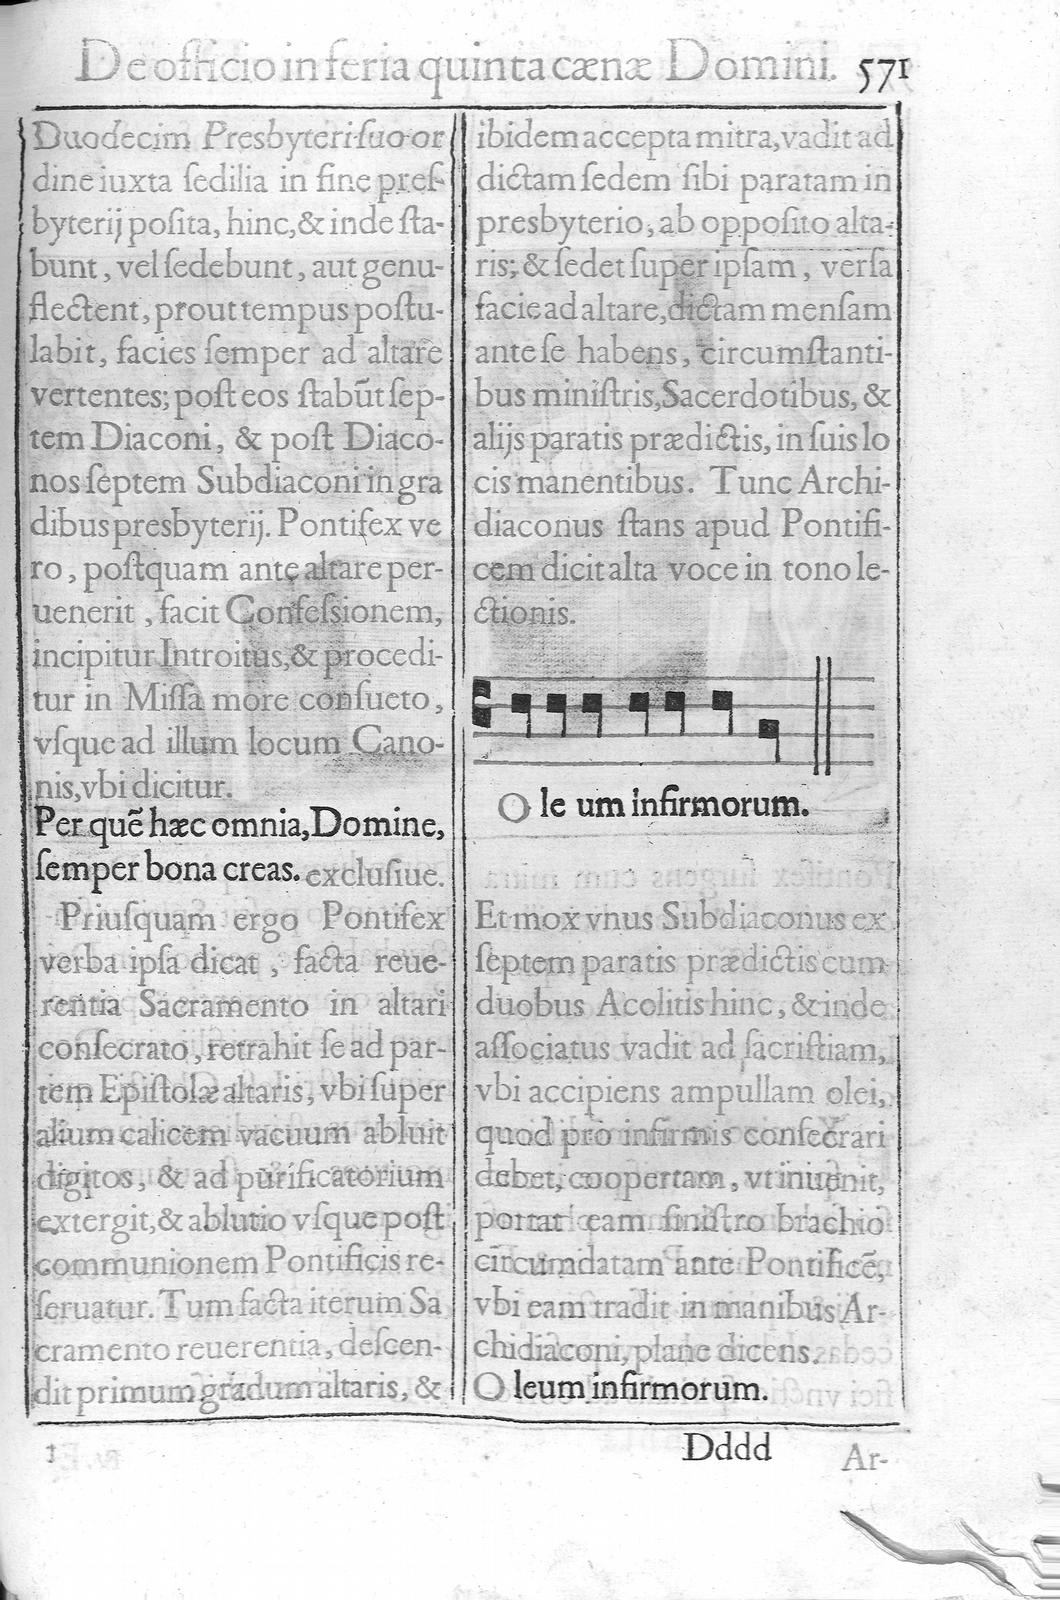 De officio in feria quinta cænæ Domini. 571
Duodecim Presbyteri suo or
dine iuxta ſedilia in fine preſ-
byterij poſita, hinc, & inde ſta-
bunt, vel ſedebunt, aut genu-
flectent, prout tempus poſtu-
labit, facies ſemper ad altare
vertentes; poſt eos ſtabũt ſep-
tem Diaconi, & poſt Diaco-
nos ſeptem Subdiaconi in gra
dibus presbyterij. Pontifex ve
ro, poſtquam ante altare per-
uenerit, facit Confeſsionem,
incipitur Introitus, & procedi-
tur in Miſſa more conſueto,
vſque ad illum locum Cano-
nis, vbi dicitur.
Per quẽ hæc omnia, Domine,
ſemper bona creas. excluſiue.
Priuſquam ergo Pontifex
verba ipſa dicat, facta reue-
rentia Sacramento in altari
conſecrato, retrahit ſe ad par-
tem Epiſtolæ altaris, vbi ſuper
alium calicem vacuum abluit
digitos, & ad purificatorium
extergit, & ablutio vſque poſt
communionem Pontificis re-
ſeruatur. Tum facta iterum Sa
cramento reuerentia, deſcen-
dit primum gradum altaris, &
ibidem accepta mitra, vadit ad
dictam ſedem ſibi paratam in
presbyterio, ab oppoſito alta-
ris; & ſedet ſuper ipſam, verſa
facie ad altare, dictam menſam
ante ſe habens, circumſtanti-
bus miniſtris, Sacerdotibus, &
alijs paratis prædictis, in ſuis lo
cis manentibus. Tunc Archi-
diaconus ſtans apud Pontifi-
cem dicit alta voce in tono le-
ctionis.
O le um infirmorum.
Et mox vnus Subdiaconus ex
ſeptem paratis prædictis cum
duobus Acolitis hinc, & inde
aſſociatus vadit ad ſacriſtiam,
vbi accipiens ampullam olei,
quod pro infirmis conſecrari
debet, coopertam, vt inuenit,
portat eam ſiniſtro brachio
circumdatam ante Pontificẽ,
vbi eam tradit in manibus Ar-
chidiaconi, plane dicens.
O leum infirmorum.
Dddd Ar-